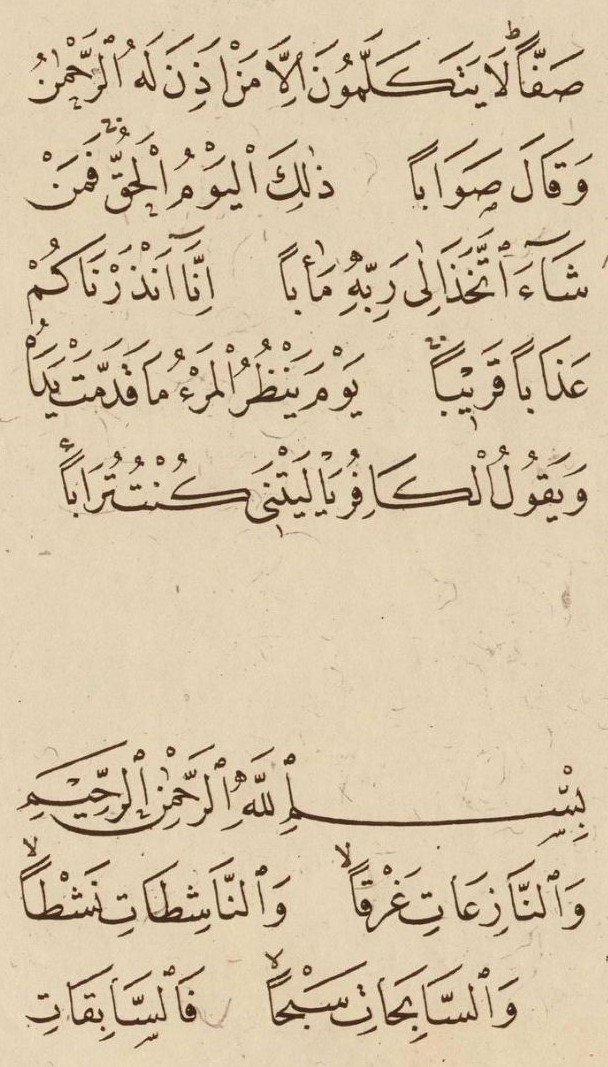 صَفًّا ۜ لَا يَتَكَلَّمُونَ اِلَّا مَنْ اَذِنَ لَهُ ٱلرَّحْمٰنُ
وَقَالَ صَوَابًا ذٰلِكَ ٱلْيَوْمُ ٱلْحَقُّ فَمَنْ
شَآءَ ٱتَّخَذَ اِلٰى رَبِّهٖ مَاٰبًا اِنَّآ اَنْذَرْنَاكُمْ
عَذَابًا قَرٖيبًا يَوْمَ يَنْظُرُ ٱلْمَرْءُ مَا قَدَّمَتْ يَدَاهُ
وَيَقُولُ ٱلْكَافِرُ يَا لَيْتَنٖى كُنْتُ تُرَابًا
بِسْمِ ٱللّٰهِ ٱلرَّحْمٰنِ ٱلرَّحٖيمِ
وَٱلنَّازِعَاتِ غَرْقًا وَٱلنَّاشِطَاتِ نَشْطًا
وَٱلسَّابِحَاتِ سَبْحًا فَٱلسَّابِقَاتِ